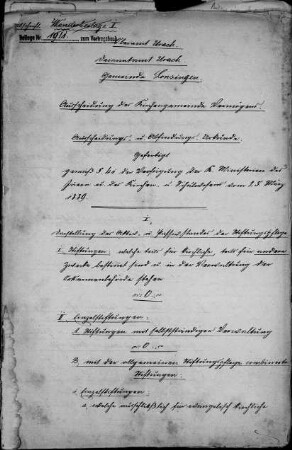 Beilage Nr. 1951 zum Vertragsbuch
Oberamt Urach.
Decanatamt Urach.
Gemeinde Lonsingen.
Ausscheidung des Kirchengemeinde Vermögens.
Ausscheidungs- u. Abfindungs-Urkunde
Gefertigt
gemäß § 40 der Verfügung der K. Ministerien des
Innern u. des Kirchen- u. Schulwesens vom 25. März
1889.
I.
Darstellung des Aktiv- u. Passivstandes der Stiftungspflege
I. Stiftungen, welche theils für kirchliche, theils für andere
Zwecke bestimmt sind u. in der Verwaltung der
Ortsarmenbehörde stehen
O
II. Einzelstiftungen:
A. Stiftungen mit selbstständiger Verwaltung
O
B. mit der allgemeinen Stiftungspflege combinirte
Stiftungen
a. Einzelstiftungen:
a. welche ausschließlich für evangelisch kirchliche